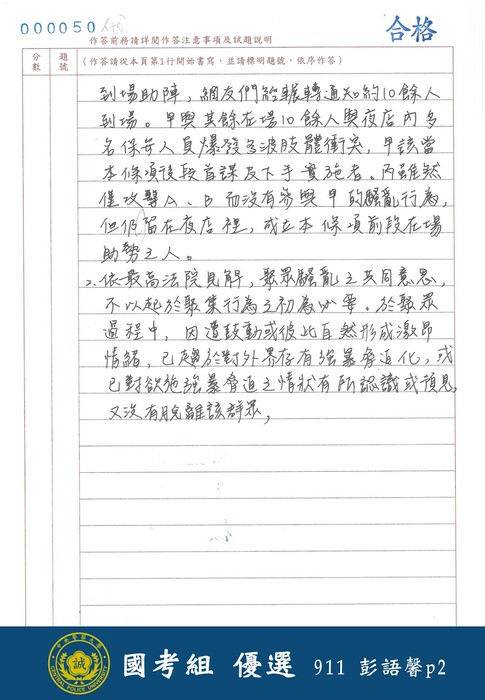 000050
合格
作答前務請詳閱作答注意事項及試題說明
分數
題號
(作答請從本頁第1行開始書寫,並請標明題號,依序作答)
到場助陣,網友們經輾轉通知約10餘人
到場。甲與其餘在場10餘人與夜店內多
名保安人員爆發多波肢體衝突,甲該當
本條項後段首謀及下手實施者。丙雖然
僅攻擊A、B而沒有參與甲的騷亂行為,
但仍留在夜店裡,成立本條項前段在場
助勢之人。
2.依最高法院見解,聚眾騷亂之共同意思,
不以起於聚集行為之初為必要。於聚眾
過程中,因遭鼓動或彼此自然形成激昂
情緒,已趨於對外界存有強暴脅迫化,或
已對欲施強暴脅迫之情狀有所認識或預見,
又沒有脫離該群眾,
中央警察大學
誠
CENTRAL POLICE UNIVERSITY
國考組 優選 911 彭語馨p2